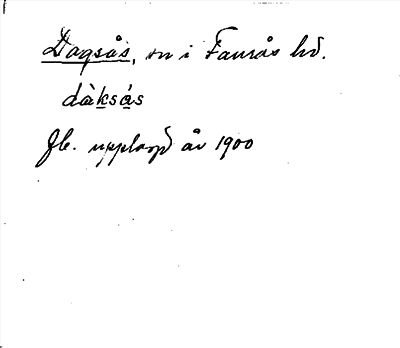 Dagsås, sn i Faurås hd.
dàksás
Jfr. uppland år 1900